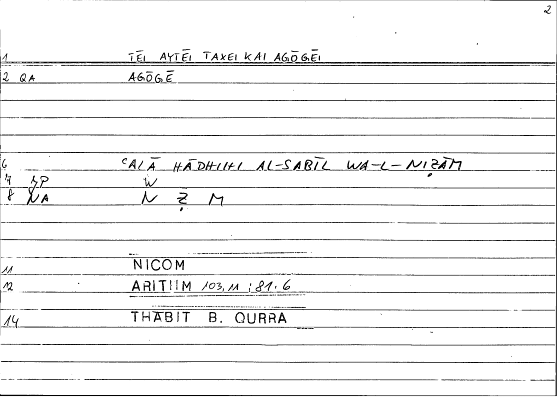 2
1 TĒI AYTĒI TAXEI KAI AGŌGĒI
2 QA AGŌGĒ
6 ʿALĀ HĀDHIHI AL-SABĪL WA-L-NIẒĀM
W
8 NA N Ẓ M
11 NICOM
12 ARITIIM 103,11 : 81.6
14 THĀBIT B. QURRA